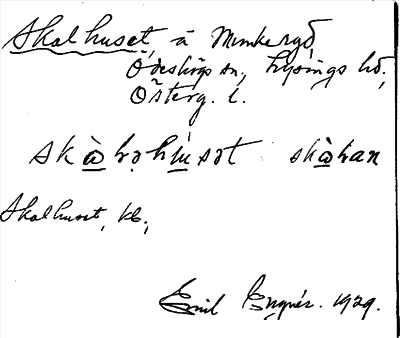 Skalhuset, å Munkergd,
Ödeshögs sn, Lysings hd,
Österg. l.
skàhǫhu̇sət skàhan
Skalhuset, kb.,
Emil Engnér. 1929.